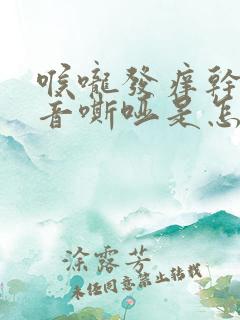 喉嚨發癢幹
音嘶啞是怎
涂露芳
未经同意禁止转载